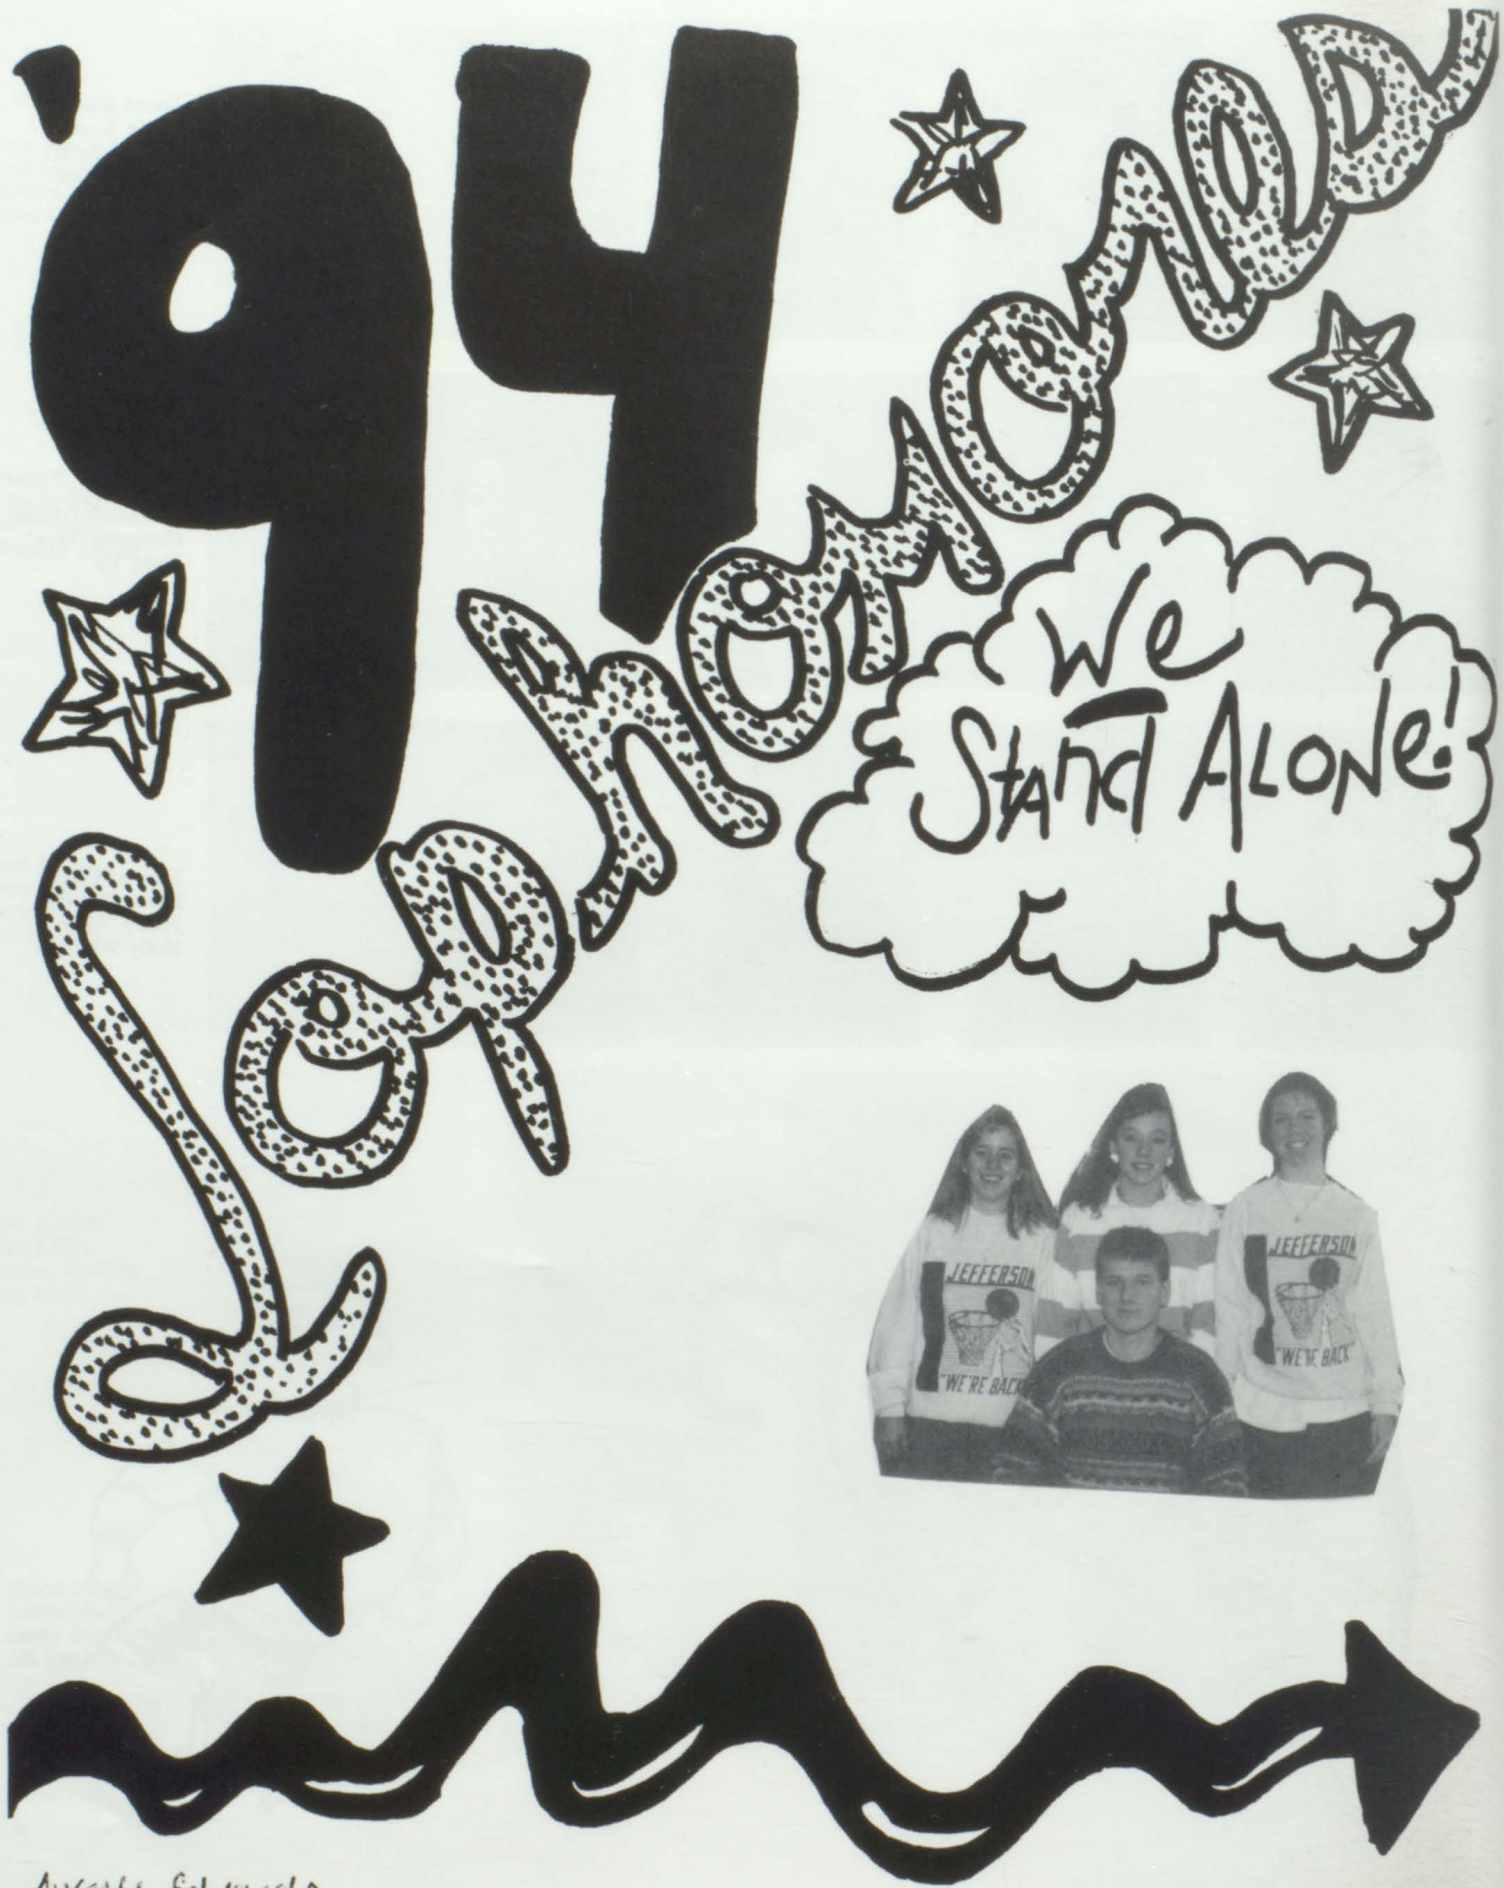 '94
Sophomores
We
Stand ALONe!
JEFFERSON
"WE'RE BACK
JEFFERSON
"WE'RE BACK"